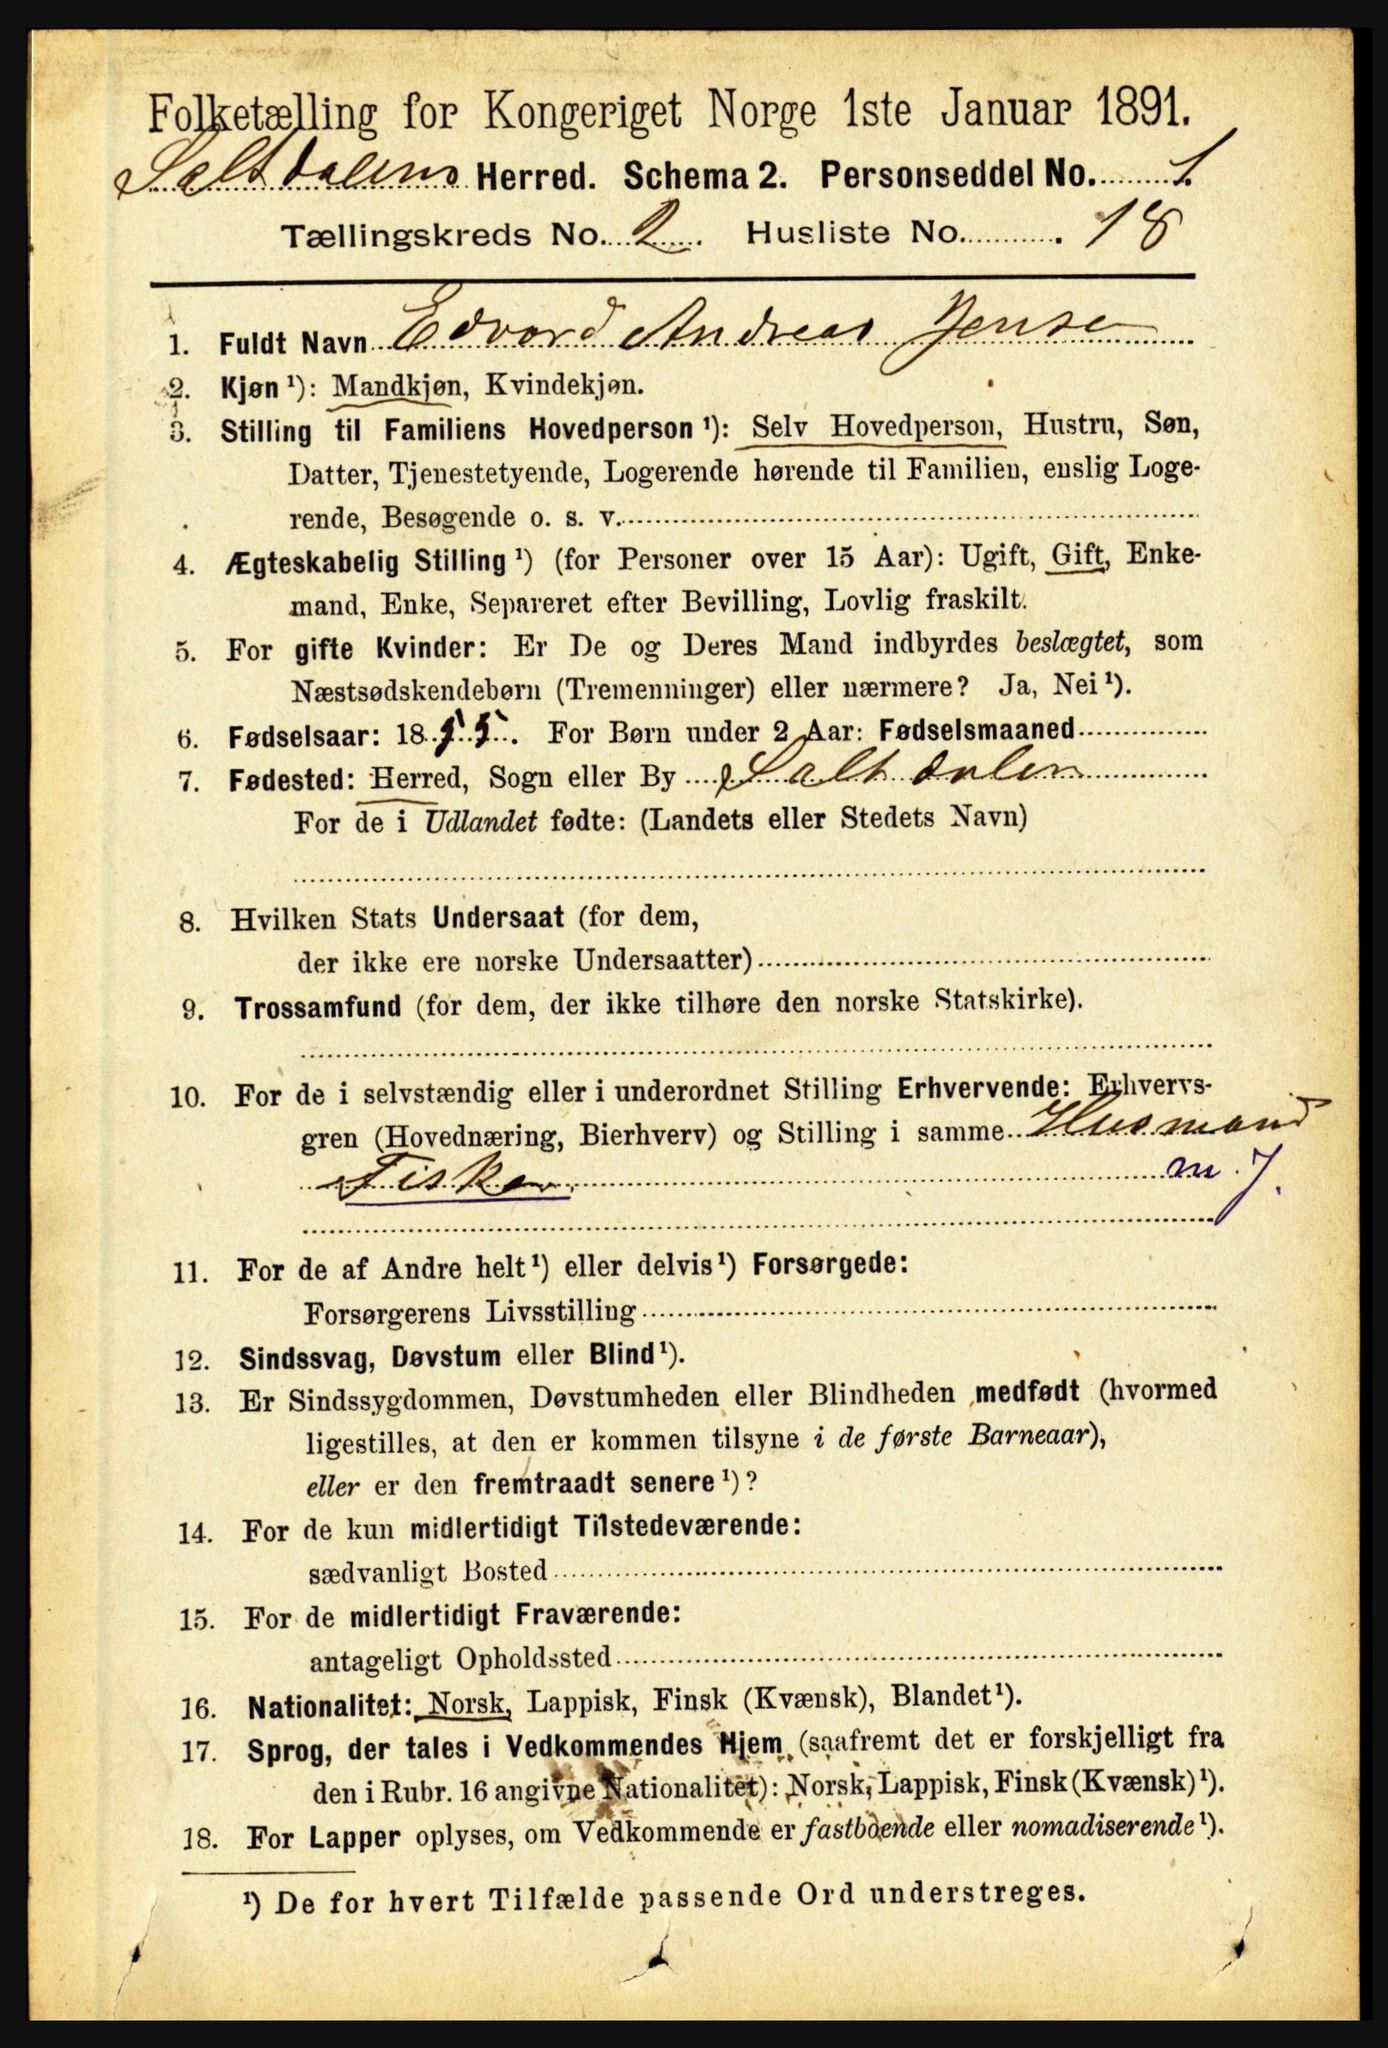 Folketælling for Kongeriget Norge 1ste Januar 1891.
Saltdalens Herred. Schema 2. Personseddel No. 1.
Tællingskreds No. 2. Husliste No. 18
1. Fuldt Navn Edvard Andreas Jensen
2. Kjøn ¹): Mandkjøn, Kvindekjøn.
3. Stilling til Familiens Hovedperson ¹): Selv Hovedperson, Hustru, Søn,
Datter, Tjenestetyende, Logerende hørende til Familien, enslig Loge-
rende, Besøgende o. s. v.
4. Ægteskabelig Stilling ¹) (for Personer over 15 Aar): Ugift, Gift, Enke-
mand, Enke, Separeret efter Bevilling, Lovlig fraskilt.
5. For gifte Kvinder: Er De og Deres Mand indbyrdes beslægtet, som
Næstsødskendebørn (Tremenninger) eller nærmere? Ja, Nei ¹).
6. Fødselsaar: 1855. For Børn under 2 Aar: Fødselsmaaned
7. Fødested: Herred, Sogn eller By Saltdalen
For de i Udlandet fødte: (Landets eller Stedets Navn)
8. Hvilken Stats Undersaat (for dem,
der ikke ere norske Undersaatter)
9. Trossamfund (for dem, der ikke tilhøre den norske Statskirke).
10. For de i selvstændig eller i underordnet Stilling Erhvervende: Erhvervs-
gren (Hovednæring, Bierhverv) og Stilling i samme Husmand
Fisker m. J.
11. For de af Andre helt ¹) eller delvis ¹) Forsørgede:
Forsørgerens Livsstilling
12. Sindssvag, Døvstum eller Blind ¹).
13. Er Sindssygdommen, Døvstumheden eller Blindheden medfødt (hvormed
ligestilles, at den er kommen tilsyne i de første Barneaar),
eller er den fremtraadt senere ¹)?
14. For de kun midlertidigt Tilstedeværende:
sædvanligt Bosted
15. For de midlertidigt Fraværende:
antageligt Opholdssted
16. Nationalitet: Norsk, Lappisk, Finsk (Kvænsk), Blandet ¹).
17. Sprog, der tales i Vedkommendes Hjem (saafremt det er forskjelligt fra
den i Rubr. 16 angivne Nationalitet): Norsk, Lappisk, Finsk (Kvænsk) ¹).
18. For Lapper oplyses, om Vedkommende er fastboende eller nomadiserende ¹).
¹) De for hvert Tilfælde passende Ord understreges.